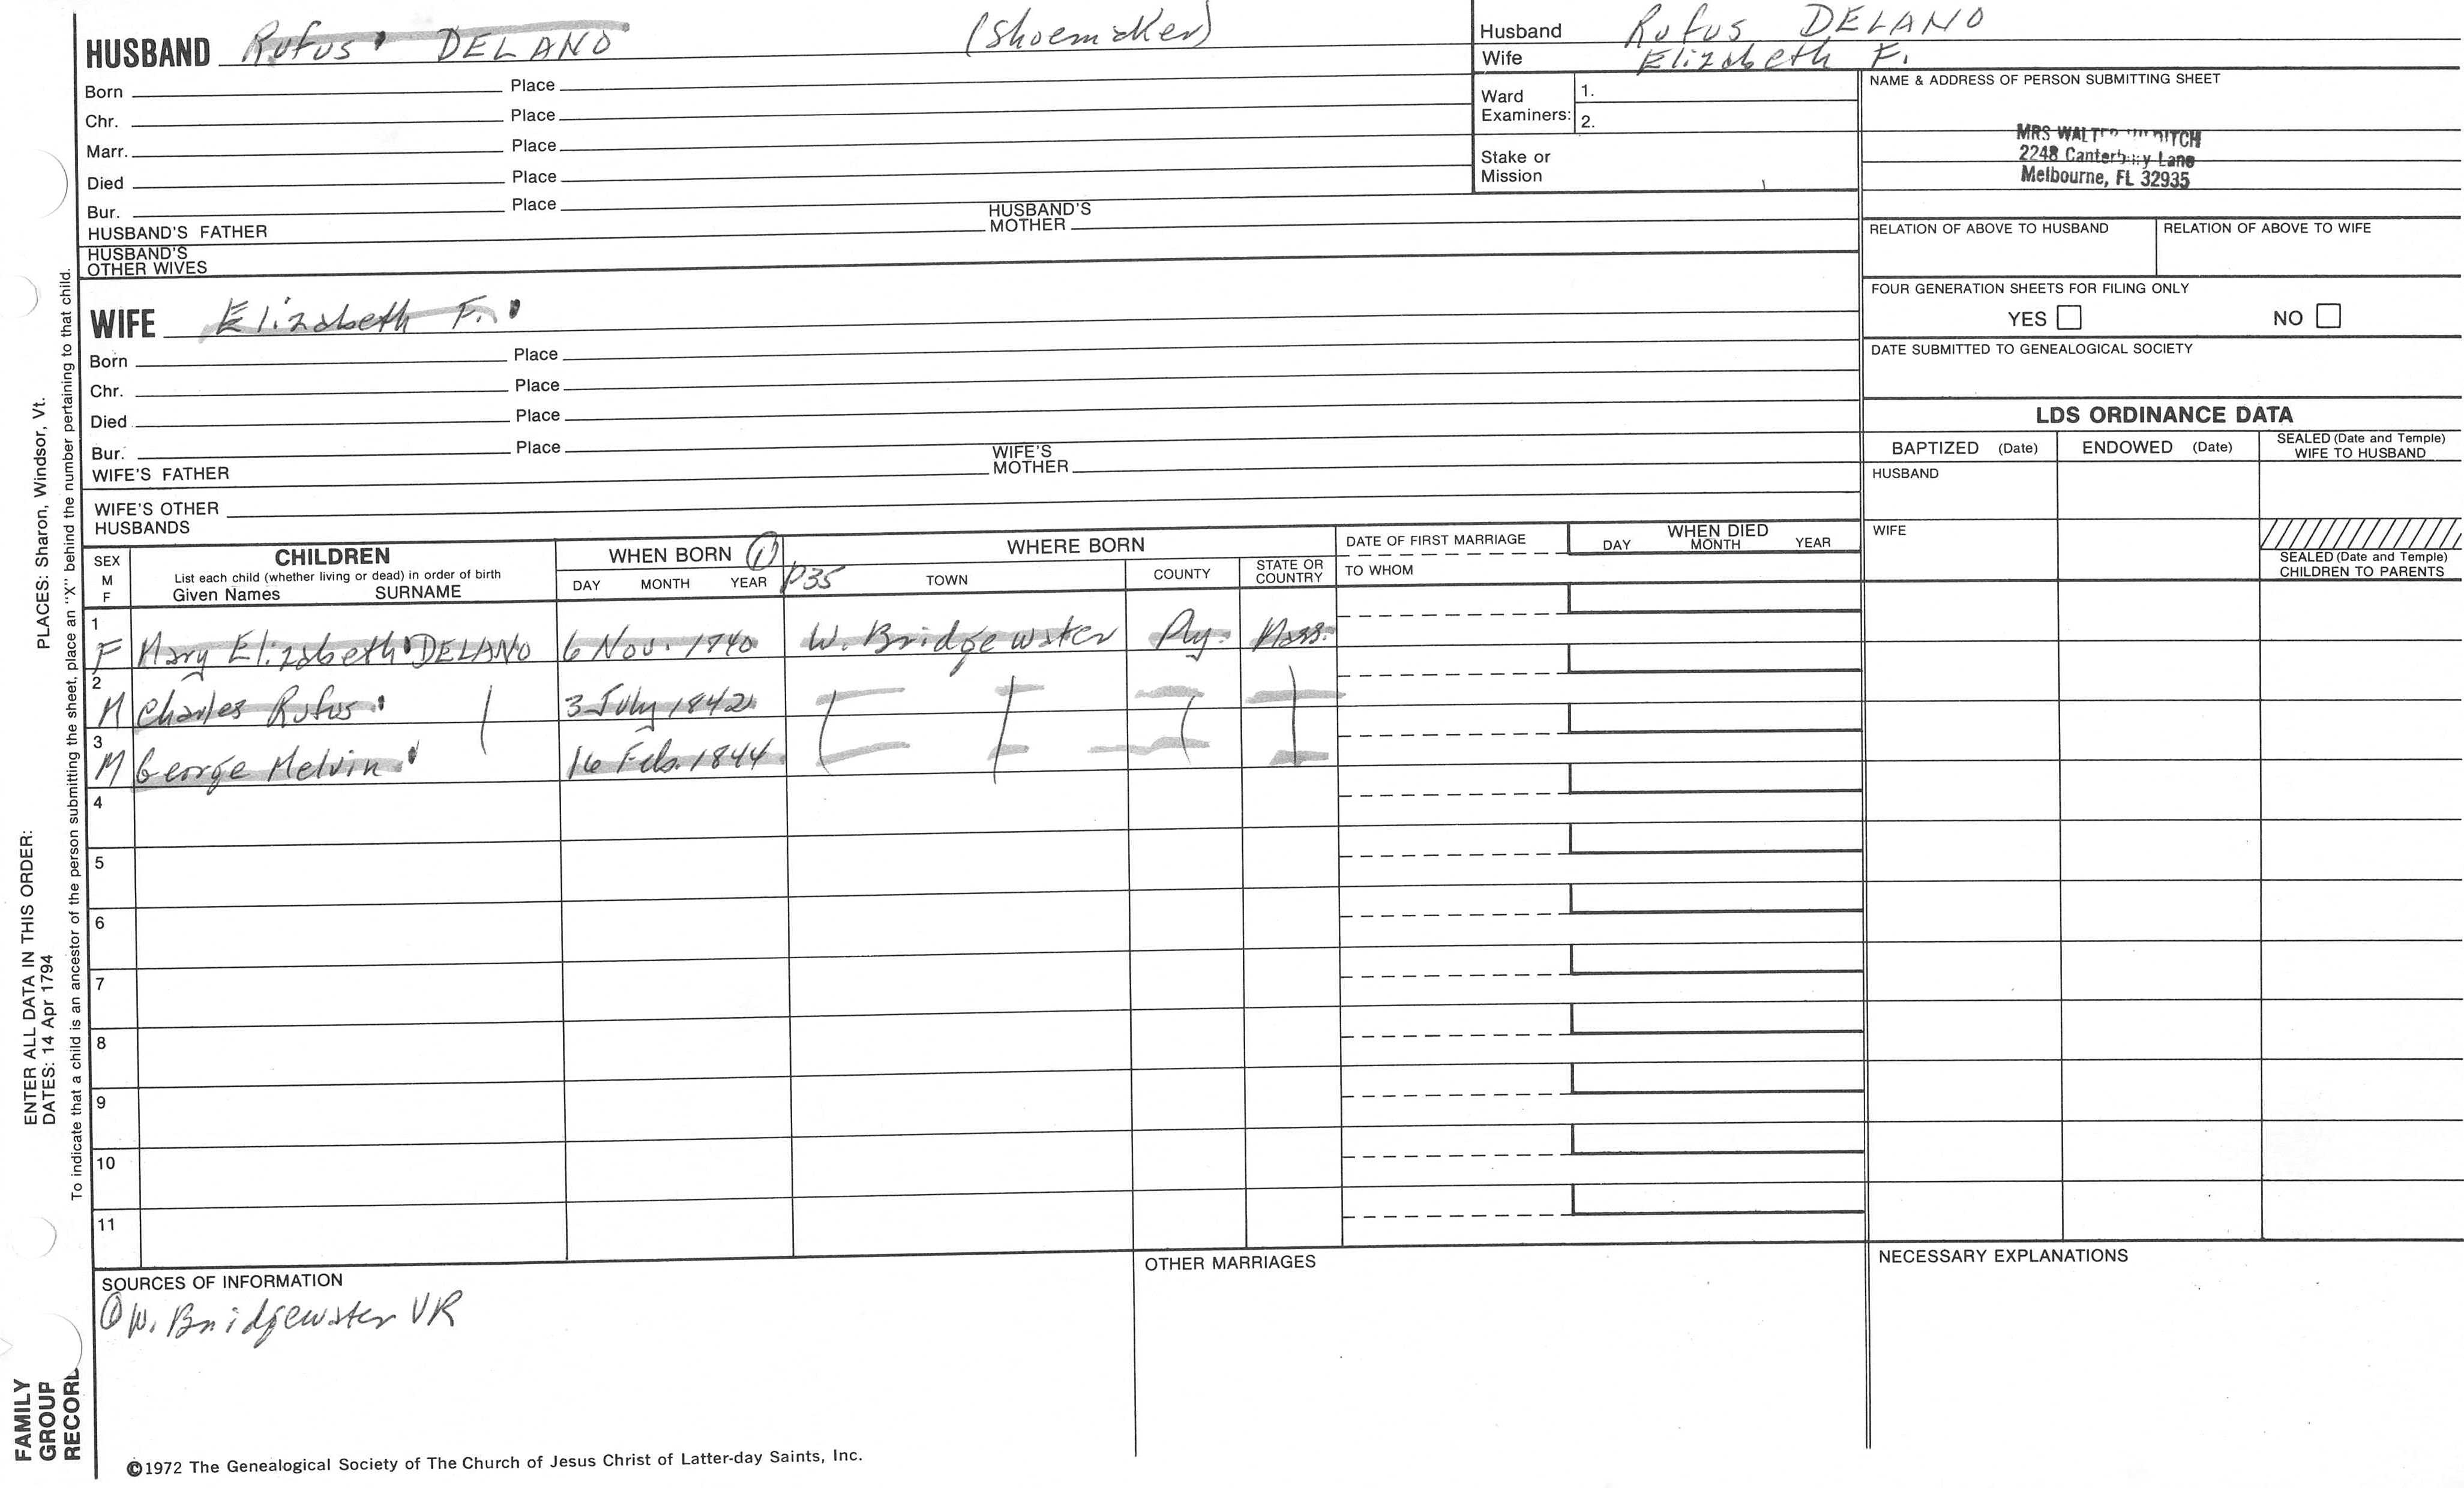 HUSBAND Rufus DELANO (Shoemaker)
Born Place
Chr. Place
Marr. Place
Died Place
Bur. Place
HUSBAND'S FATHER HUSBAND'S MOTHER
HUSBAND'S OTHER WIVES
WIFE Elizabeth F.
Born Place
Chr. Place
Died Place
Bur. Place
WIFE'S FATHER WIFE'S MOTHER
WIFE'S OTHER HUSBANDS
Husband Rufus DELANO
Wife Elizabeth F.
Ward Examiners: 1.
2.
Stake or Mission
NAME & ADDRESS OF PERSON SUBMITTING SHEET
MRS WALTER
2248 Canterbury Lane
Melbourne, FL 32935
RELATION OF ABOVE TO HUSBAND RELATION OF ABOVE TO WIFE
FOUR GENERATION SHEETS FOR FILING ONLY
YES NO
DATE SUBMITTED TO GENEALOGICAL SOCIETY
LDS ORDINANCE DATA
BAPTIZED (Date) ENDOWED (Date) SEALED (Date and Temple) WIFE TO HUSBAND
HUSBAND
WIFE
SEALED (Date and Temple) CHILDREN TO PARENTS
SEX M F
CHILDREN
List each child (whether living or dead) in order of birth
Given Names SURNAME
WHEN BORN (1)
DAY MONTH YEAR
WHERE BORN
P35 TOWN COUNTY STATE OR COUNTRY
DATE OF FIRST MARRIAGE
TO WHOM
WHEN DIED
DAY MONTH YEAR
1 F Mary Elizabeth DELANO 6 Nov. 1840 W. Bridgewater Ply. Mass.
2 M Charles Rufus 3 July 1842
3 M George Melvin 16 Feb. 1844
4
5
6
7
8
9
10
11
SOURCES OF INFORMATION
① W. Bridgewater VR
OTHER MARRIAGES
NECESSARY EXPLANATIONS
©1972 The Genealogical Society of The Church of Jesus Christ of Latter-day Saints, Inc.
PLACES: Sharon, Windsor, Vt.
To indicate that a child is an ancestor of the person submitting the sheet, place an "X" behind the number pertaining to that child.
ENTER ALL DATA IN THIS ORDER:
DATES: 14 Apr 1794
FAMILY GROUP RECORD